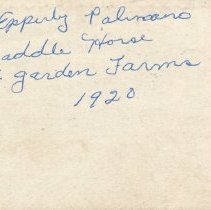 Epperly Palimano
addle Horse
garden Farms
1920